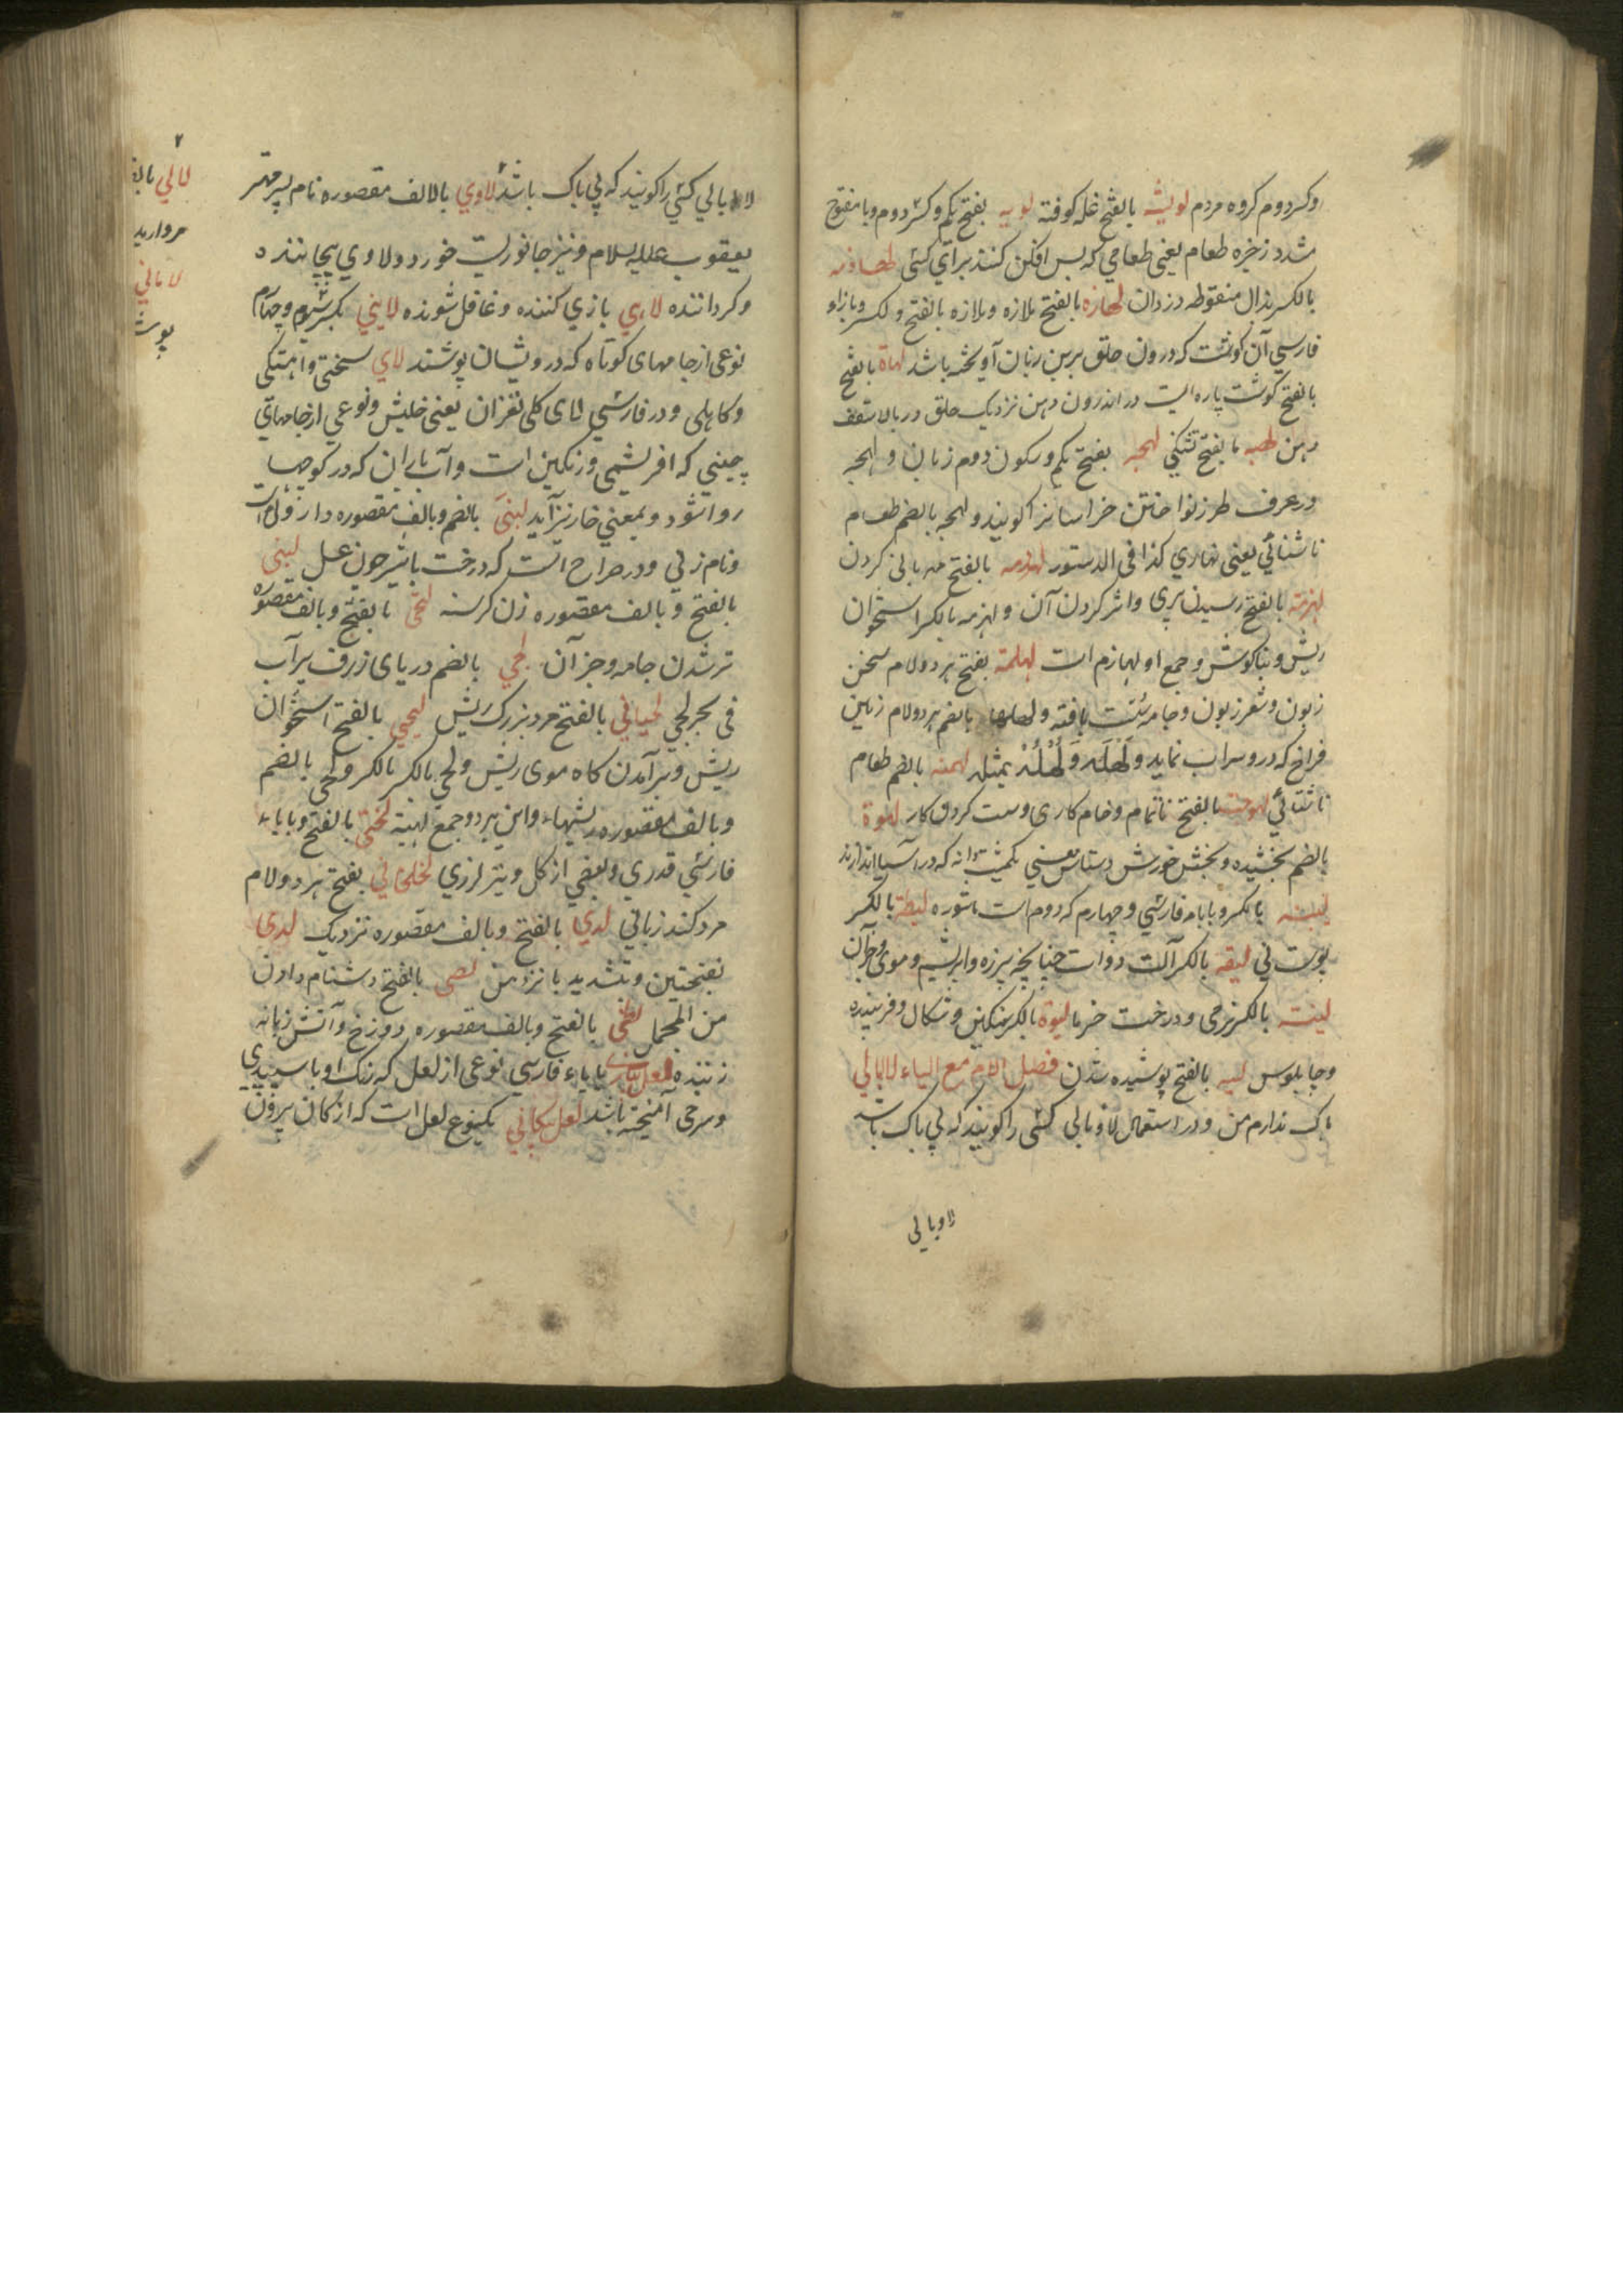 وکسر دوم کروه مردم لویشه بالفتح غله کوفته لویه بفتح یکم وکسر دوم وبا مفتوح
مشدد زخیره طعام یعنی طعامی که پس افکن کنند برای کسی
بالکسر بذال منقوطه دزدان لهازه بالفتح بلازه وبلازه بالفتح و لکسر وبا زاء
فارسی آن کوشت که درون حلق برین زبان آویخته باشد لهاة بالفتح
بالفتح کوشت پاره ایست در اندرون دهن نزدیک حلق در بالا سقف
دهن لهبه بالفتح تشنکی لهجه بفتح یکم وسکون دوم زبان و لهجه
در عرف طرز نواختن خراسانیز اکویند و لهجه بالضم طعام
ناشتائی یعنی نهاری کذا فی الدستور بالفتح کردن
لهزمة بالفتح رسیدن پیری واثر کردن آن و لهزمه بالکسر استخوان
ریش وبناکوش وجمع او لهازم است لهلهة بفتح هر دو لام سخن
زبون وشعر زبون وجامه سست بافته ولهلها بالضم هر دو لام زمین
فراخ که درو سراب نماید و لهله و لهله بمثله لهنه بالضم طعام
ناشتائی لهوجة بالفتح ناتمام وخام کاری وسست کردن کار لهوة
بالضم بخشیده وبخشش خورش دستاس یعنی یکمشت دانه که در آسیا اندازند
بالکسر وبا باء فارسی وچهارم که دوم است باشوره لیطة بالکسر
پوست نی لیقه بالکسر آلت دوات چنانچه پرزه وابریشم وموی وجز آن
لینة بالکسر نرمی ودرخت خرما لیوة بالکسر وشکال وفریبنده
وچاپلوس لییه بالفتح پوشیده شدن فصل اللام مع الیاء لاابالی
باک ندارم من ودر استعمال لاوبالی کسی را کویند که بی باک باشد
لاوبالی
لاابالی کسی را کویند که بی باک باشد لاوی بالالف مقصوره نام پسر مهتر
یعقوب علیه السلام ونیز جانوریست خورد ولاوی پیچاننده
وکرداننده لاهی بازی کننده وغافل شونده لاینی بکسر سوم وچهارم
نوعی از جامهای کوتاه که درویشان پوشند لای سختی واهستکی
وکاهلی ودر فارسی لای کلی نغزان یعنی خلیش ونوعی از جامهای
چینی که ابریشمی ورنکین است وآب باران که در کوچها
روا شود وبمعنی خار نیز آید لبنی بالضم وبالف مقصوره داروئی است
ونام زنی ودر صراح است که درخت باشیر چون عسل لبنی
بالفتح وبالف مقصوره زن کرسنه لثی بالفتح وبالف مقصوره
تر شدن جامه وجز آن لجی بالضم دریای ژرف پر آب
فی بحر لجی لحیانی بالفتح مرد بزرک ریش لحیی بالفتح استخوان
ریش وبر آمدن کاه موی ریش ولحی بالکسر بالکسر ولحی بالضم
وبالف مقصوره ریشها واین هر دو جمع لحیه لختی بالفتح وبا یاء
فارسی قدری وبعضی از کل ونیز لرزی لخلخانی بفتح هر دو لام
مرد کند زبانی لدی بالفتح وبالف مقصوره نزدیک لدی
بفتحتین وتشدید یا نزد من لصی بالفتح دشنام دادن
من المجمل لظی بالفتح وبالف مقصوره دوزخ وآتش زبانه
زننده لعل پیازی با یاء فارسی نوعی از لعل که رنک او با سپیدی
وسرخی آمیخته باشد لعل پیکانی یکنوع لعل است که از کان بیرون
لالی بالف
مروارید
لامانی
پوش